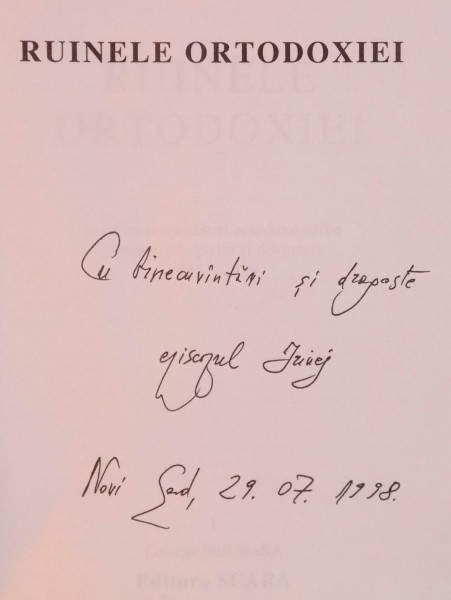 RUINELE ORTODOXIEI
RUINELE
ORTODOXIEI
Cu binecuvîntări și dragoste
episcopul Irinej
Novi Sad, 29. 07. 1998.
Editura SCARA